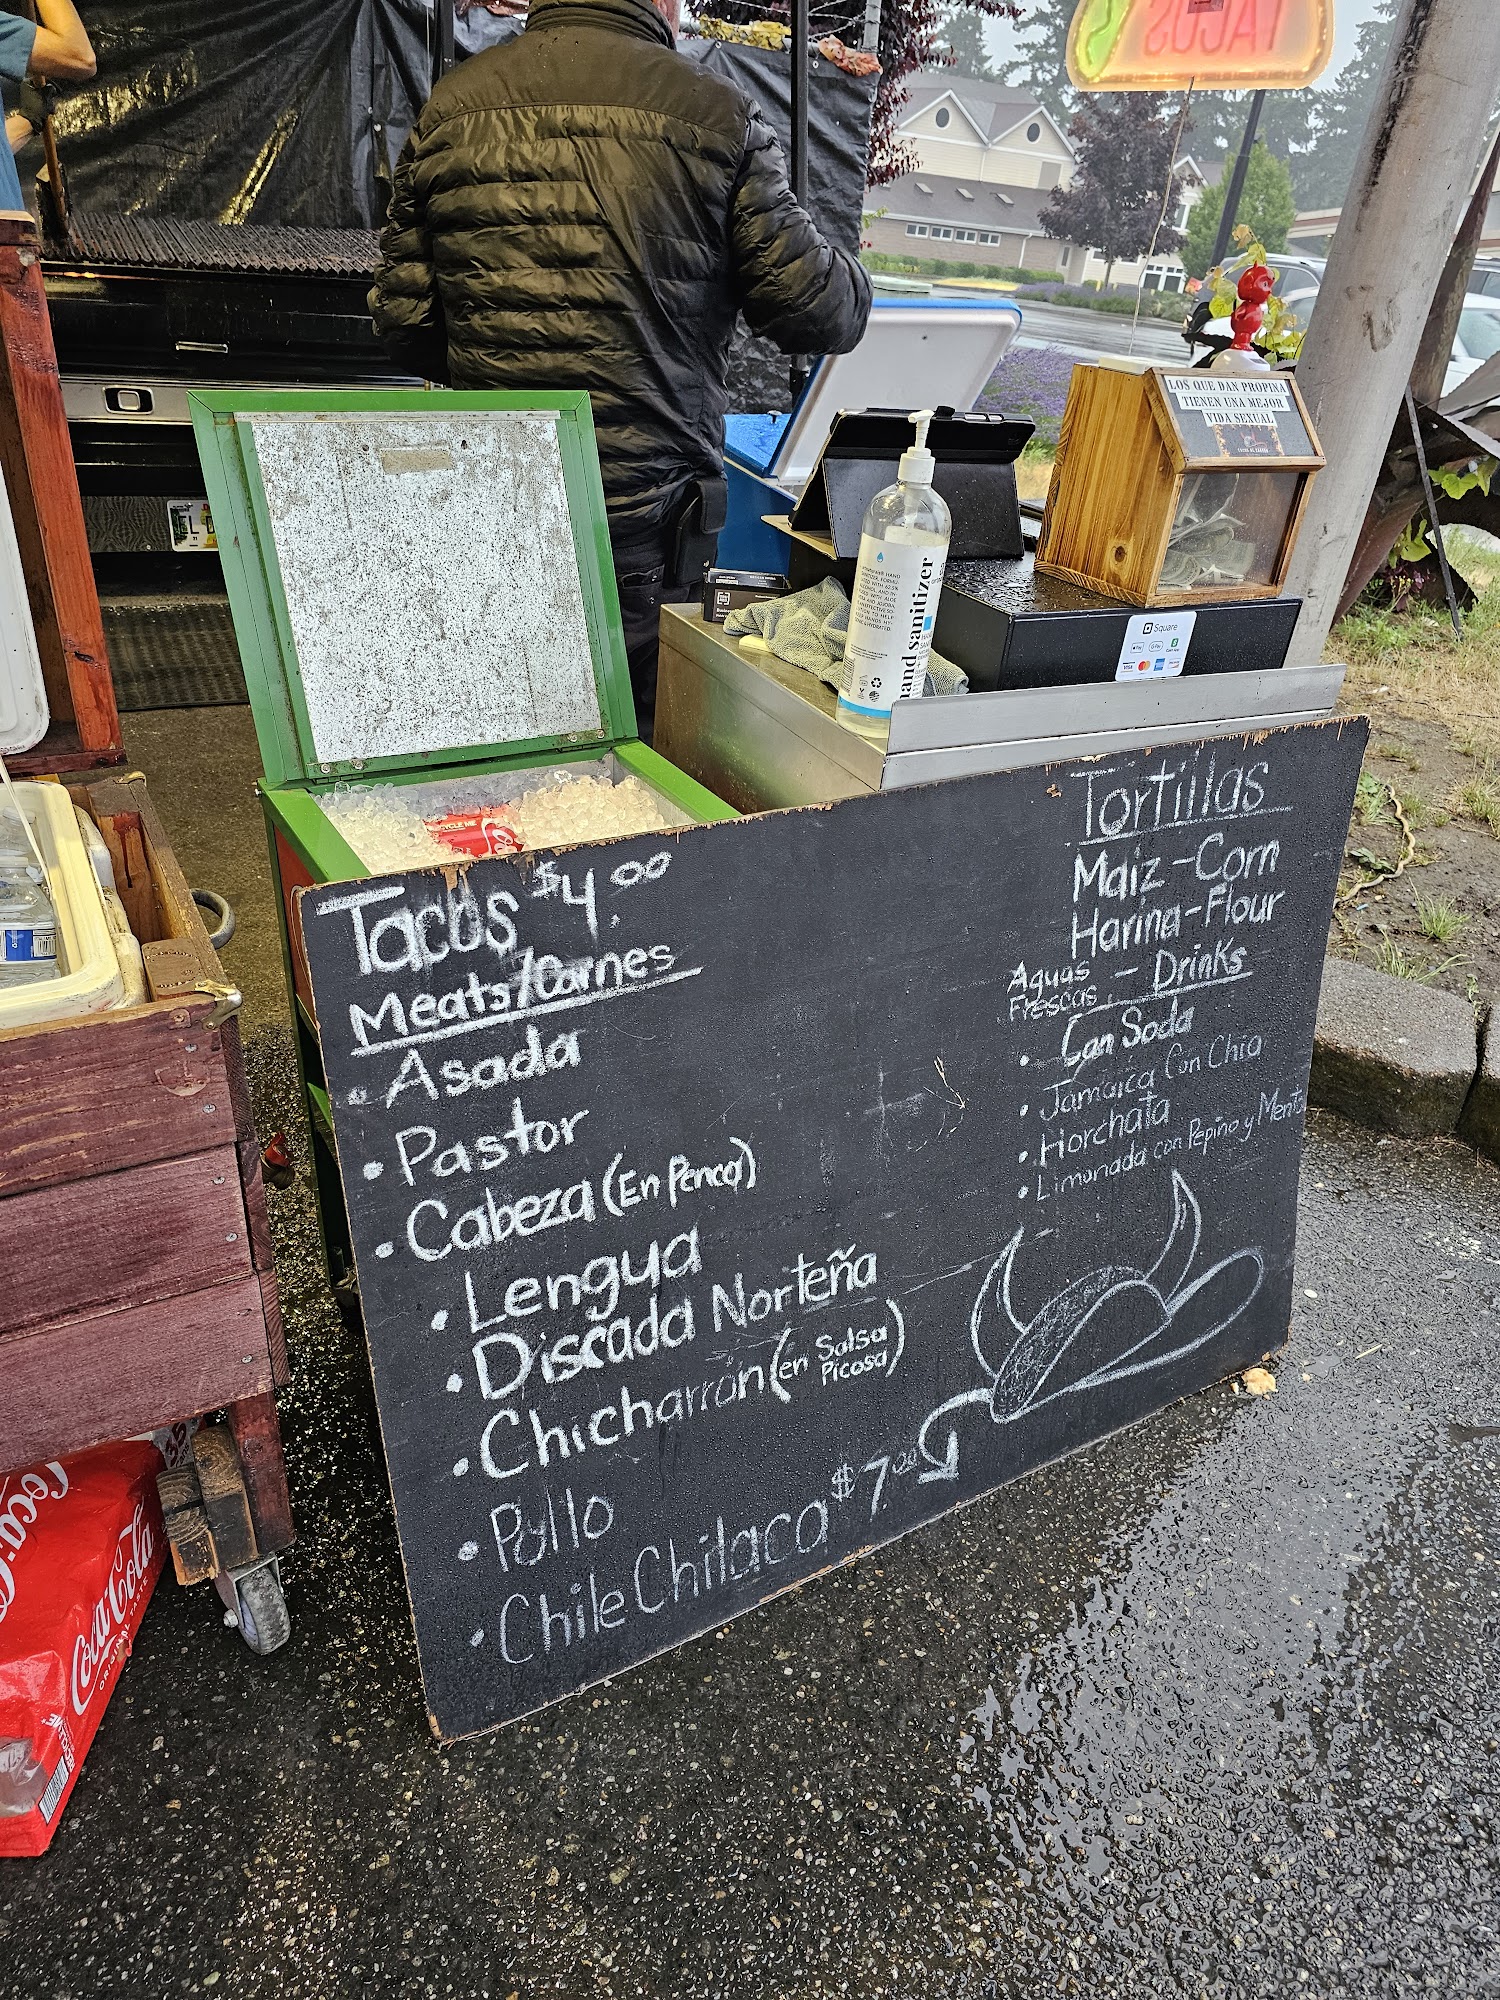 TACOS
LOS QUE DAN PROPINA
TIENEN UNA MEJOR
VIDA SEXUAL
hand sanitizer
Square
Pay
G Pay
VISA
RECYCLE ME
Tacos $4.00
Meats/Carnes
• Asada
• Pastor
• Cabeza (En Penca)
• Lengua
• Discada Norteña
• Chicharrón (en Salsa
Picosa)
• Pollo
• Chile Chilaca $7.00
Tortillas
Maiz - Corn
Harina - Flour
Aguas
Frescas - Drinks
• Can Soda
• Jamaica Con Chia
• Horchata
• Limonada con Pepino y Menta
Coca-Cola
Coca-Cola
ORIGINAL TASTE
35